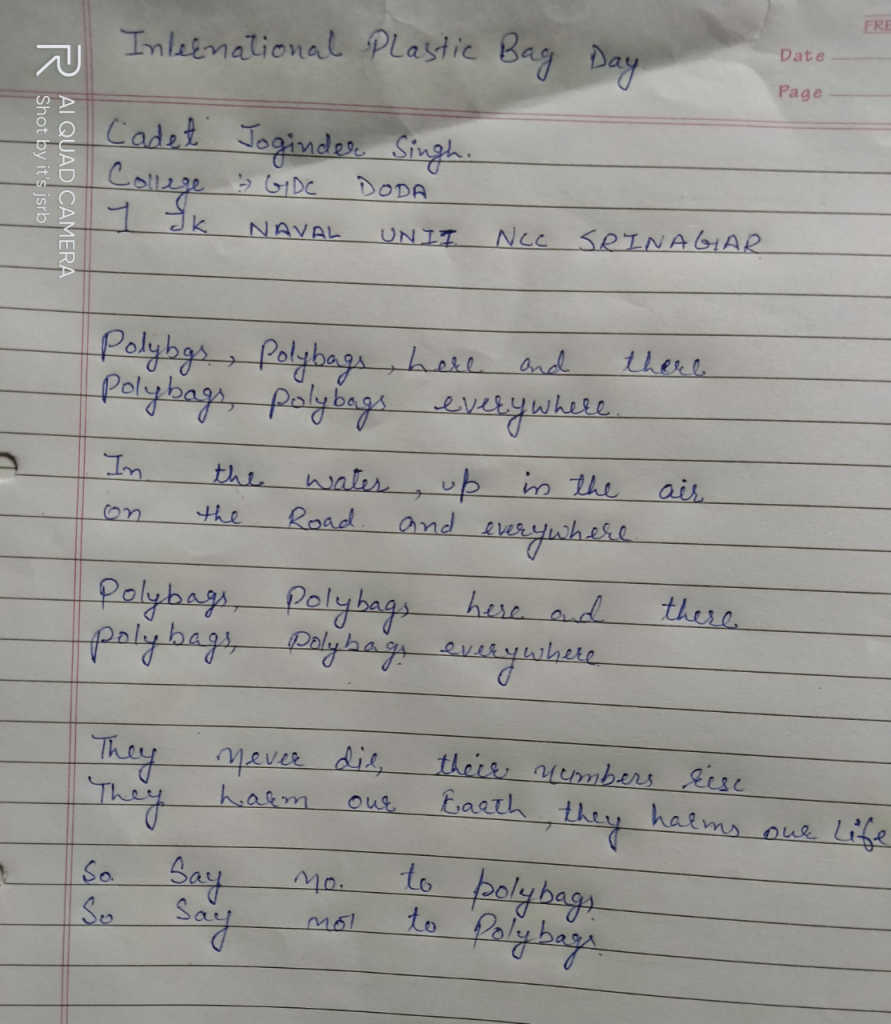 International Plastic Bag Day
FRE
Date
Page
Cadet Joginder Singh.
College :> GDC DODA
1 JK NAVAL UNIT NCC SRINAGAR
Polybgs, Polybags, here and there
Polybags, polybags everywhere.
In the water, up in the air
on the Road. and everywhere
Polybags, Polybags here and there
polybags, Polybags everywhere
They never die, their numbers rise
They harm our Earth, they harms our life
So Say no. to polybags.
So Say not to Polybags.
AI QUAD CAMERA
Shot by it's jsrb